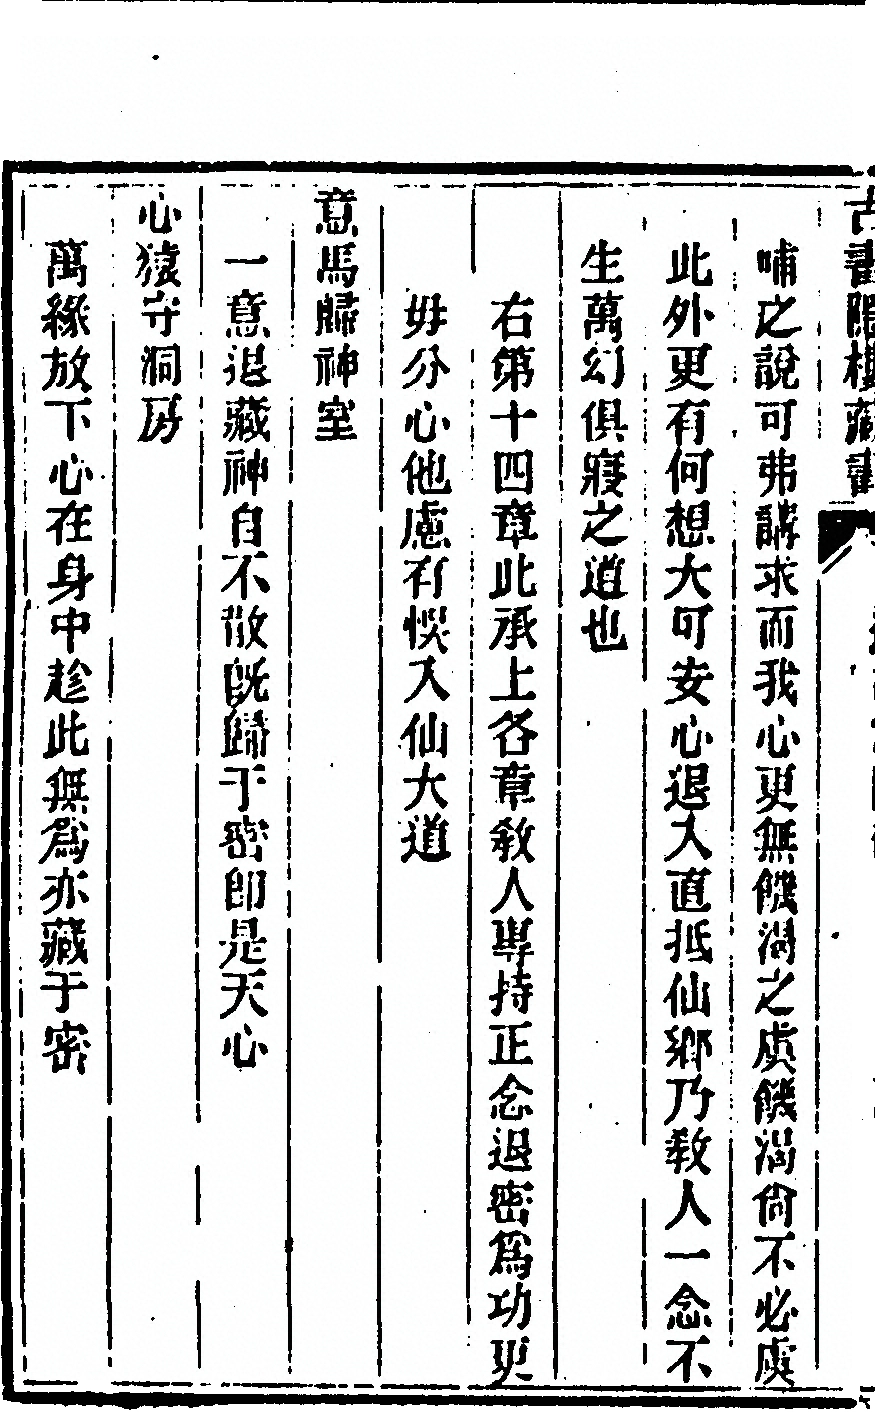 古書隱樓藏書
哺之說可弗講求而我心更無饑渴之虞饑渴尙不必虞
此外更有何想大可安心退入直抵仙鄉乃敎人一念不
生萬幻俱寢之道也
右第十四章此承上各章敎人專持正念退密爲功更
毋分心他慮有悞入仙大道
意馬歸神室
一意退藏神自不散旣歸于密卽是天心
心猿守洞房
萬緣放下心在身中趁此無爲亦藏于密